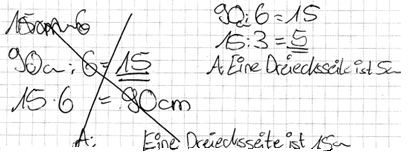 90cm : 6 = 15
15 · 6 = 90cm
A: Eine Dreiecksseite ist 15cm
90 : 6 = 15
15 : 3 = 5
A: Eine Dreiecksseite ist 5cm